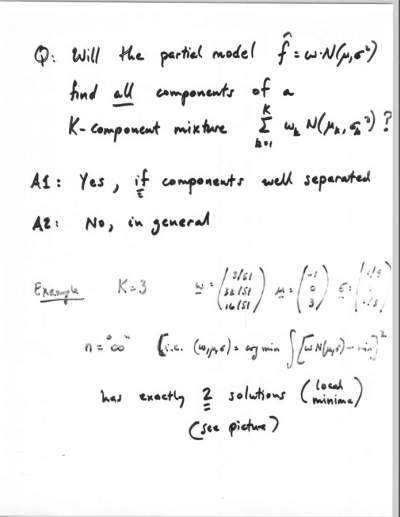 Q: Will the partial model f̂ = w·N(μ,σ²)
find all components of a
K-component mixture Σ_{k=1}^{K} w_k N(μ_k, σ_k²) ?
A1: Yes, if components well separated
A2: No, in general
Example K=3 w = μ = (-1 0 3) σ =
n = "∞" [i.e. (w,μ,σ) = arg min ∫ [w N(μ,σ) - ]²
has exactly 2 solutions (local minima)
(see picture)